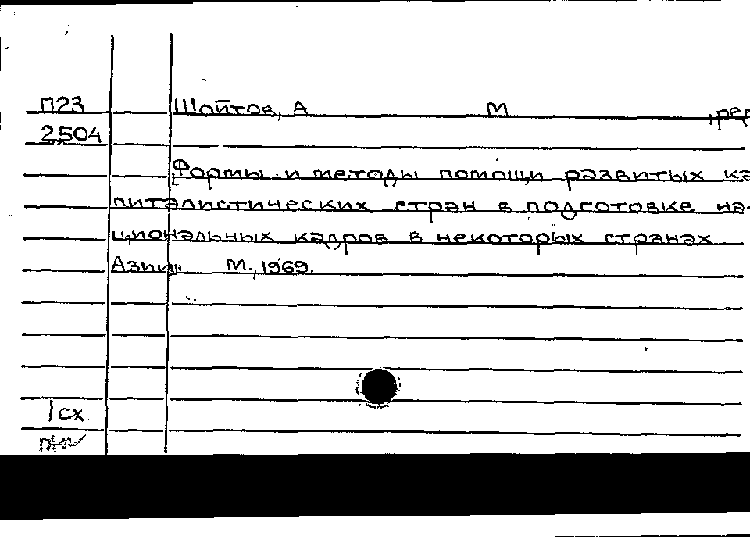 П23 Шойтов, А М , ред
2504
Формы и методы помощи развитых ка-
питалистических стран в подготовке на-
циональных кадров в некоторых странах
Азии. М., 1969.
1сх